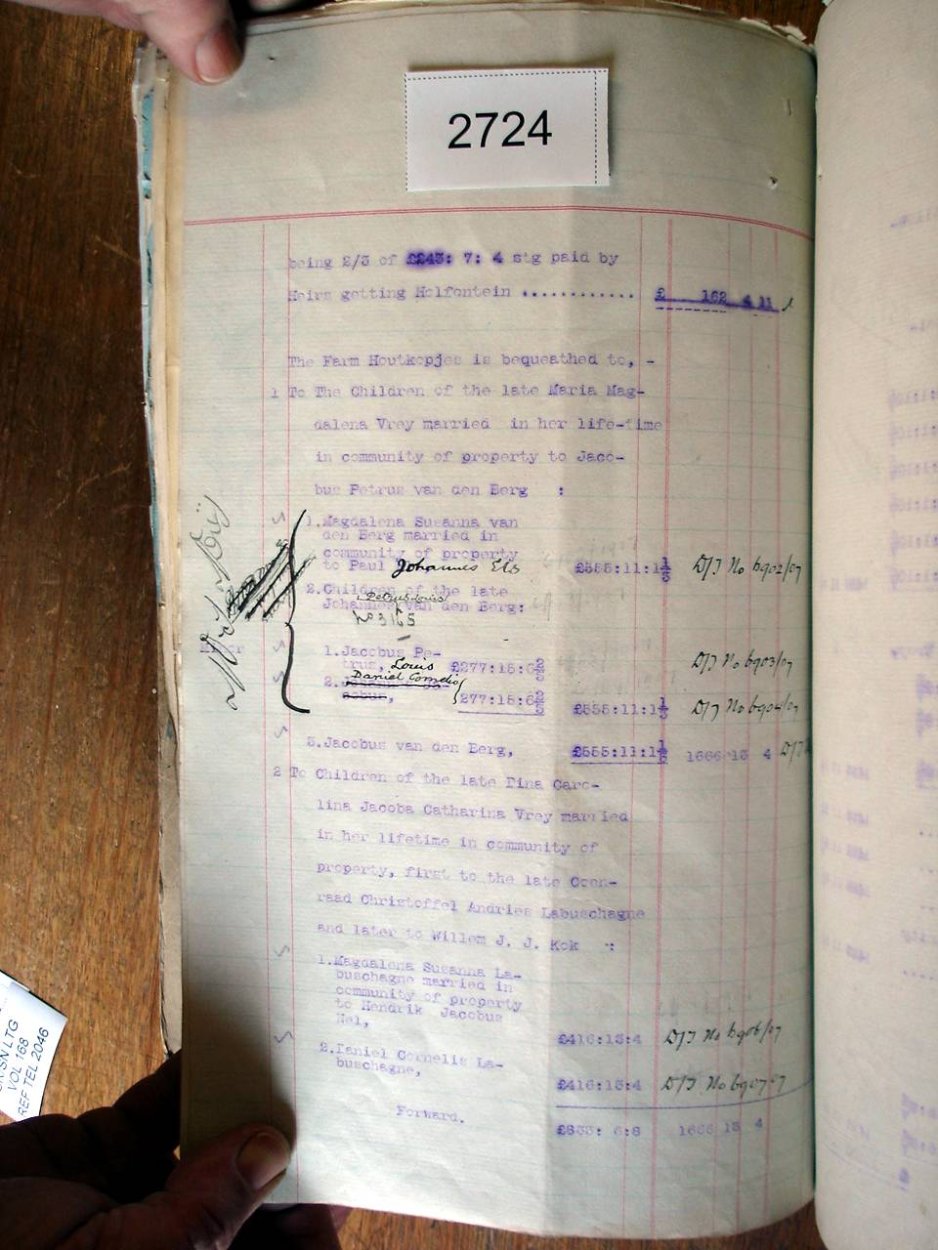 2724
being 2/3 of £243: 7: 4 stg paid by
Heirs getting Holfontein ............ £ 162 4 11
The Farm Houtkopjes is bequeathed to, -
1 To The Children of the late Maria Mag-
dalena Vrey married in her life-time
in community of property to Jaco-
bus Petrus van den Berg :
1. Magdalena Susanna van
den Berg married in
community of property
to Paul Johannes Els £555:11:1 1/3 D/T No 6902/07
2. Children of the late
Petrus Louis
Johannes van den Berg:
No 3165
Minor 1. Jacobus Pe-
trus, Louis £277:15:6 2/3 D/T No 6903/07
Daniel Cornelis
2.
cobus, 277:15:6 2/3 £555:11:1 1/3 D/T No 6904/07
3. Jacobus van den Berg, £555:11:1 1/3 1666 13 4 D/T
2 To Children of the late Dina Caro-
lina Jacoba Catharina Vrey married
in her lifetime in community of
property, first to the late Coen-
raad Christoffel Andries Labuschagne
and later to Willem J. J. Kok :
1. Magdalena Susanna La-
buschagne married in
community of property
to Hendrik Jacobus
Nel, £416:13:4 D/T No 6906/07
2. Daniel Cornelis La-
buschagne, £416:13:4 D/T No 6907/07
Forward. £833: 6:8 1666 13 4
SN LTG
VOL 168
REF TEL 2046